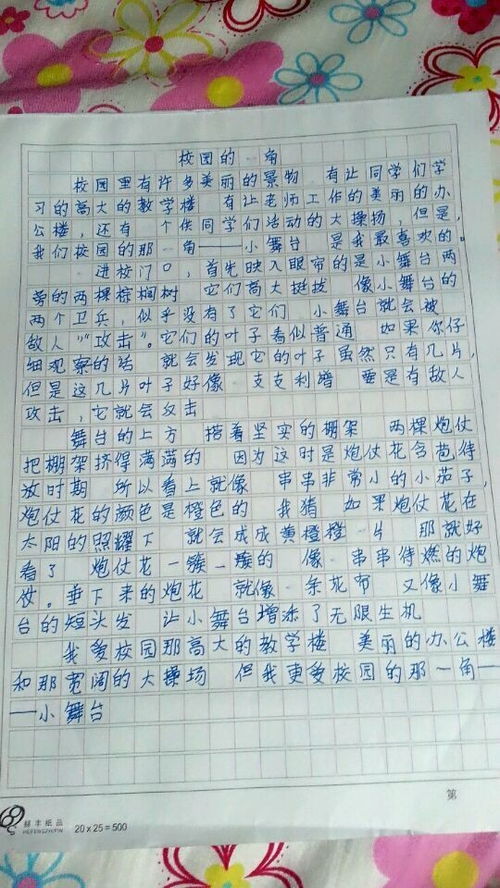 校园的一角
校园里有许多美丽的景物 有让同学们学
习的高大的教学楼 有让老师工作的美丽的办
公楼，还有一个供同学们活动的大操场，但是，
我们校园的那一角——小舞台 是我最喜欢的。
一进校门口，首先映入眼帘的是小舞台两
旁的两棵棕榈树 它们高大挺拔 像小舞台的
两个卫兵，似乎没有了它们 小舞台就会被
敌人"攻击"。它们的叶子看似普通 如果你仔
细观察的话 就会发现它的叶子虽然只有几片，
但是这几片叶子好像一支支利 要是有敌人
攻击，它就会反击
舞台的上方 搭着坚实的棚架 两棵炮仗
把棚架挤得满满的 因为这时是炮仗花含苞待
放时期 所以看上就像一串串非常小的小茄子，
炮仗花的颜色是橙色的 我猜 如果炮仗花在
太阳的照耀下 就会成成黄橙橙一片 那就好
看了 炮仗花一簇一簇的 像一串串待燃的炮
仗。垂下来的炮花 就像一条花布 又像小舞
台的短头发 让小舞台增添了无限生机
我爱校园那高大的教学楼 美丽的办公楼
和那宽阔的大操场 但我更爱校园的那一角—
—小舞台
第
赫丰纸品
HEFENGZHIPIN
20×25=500